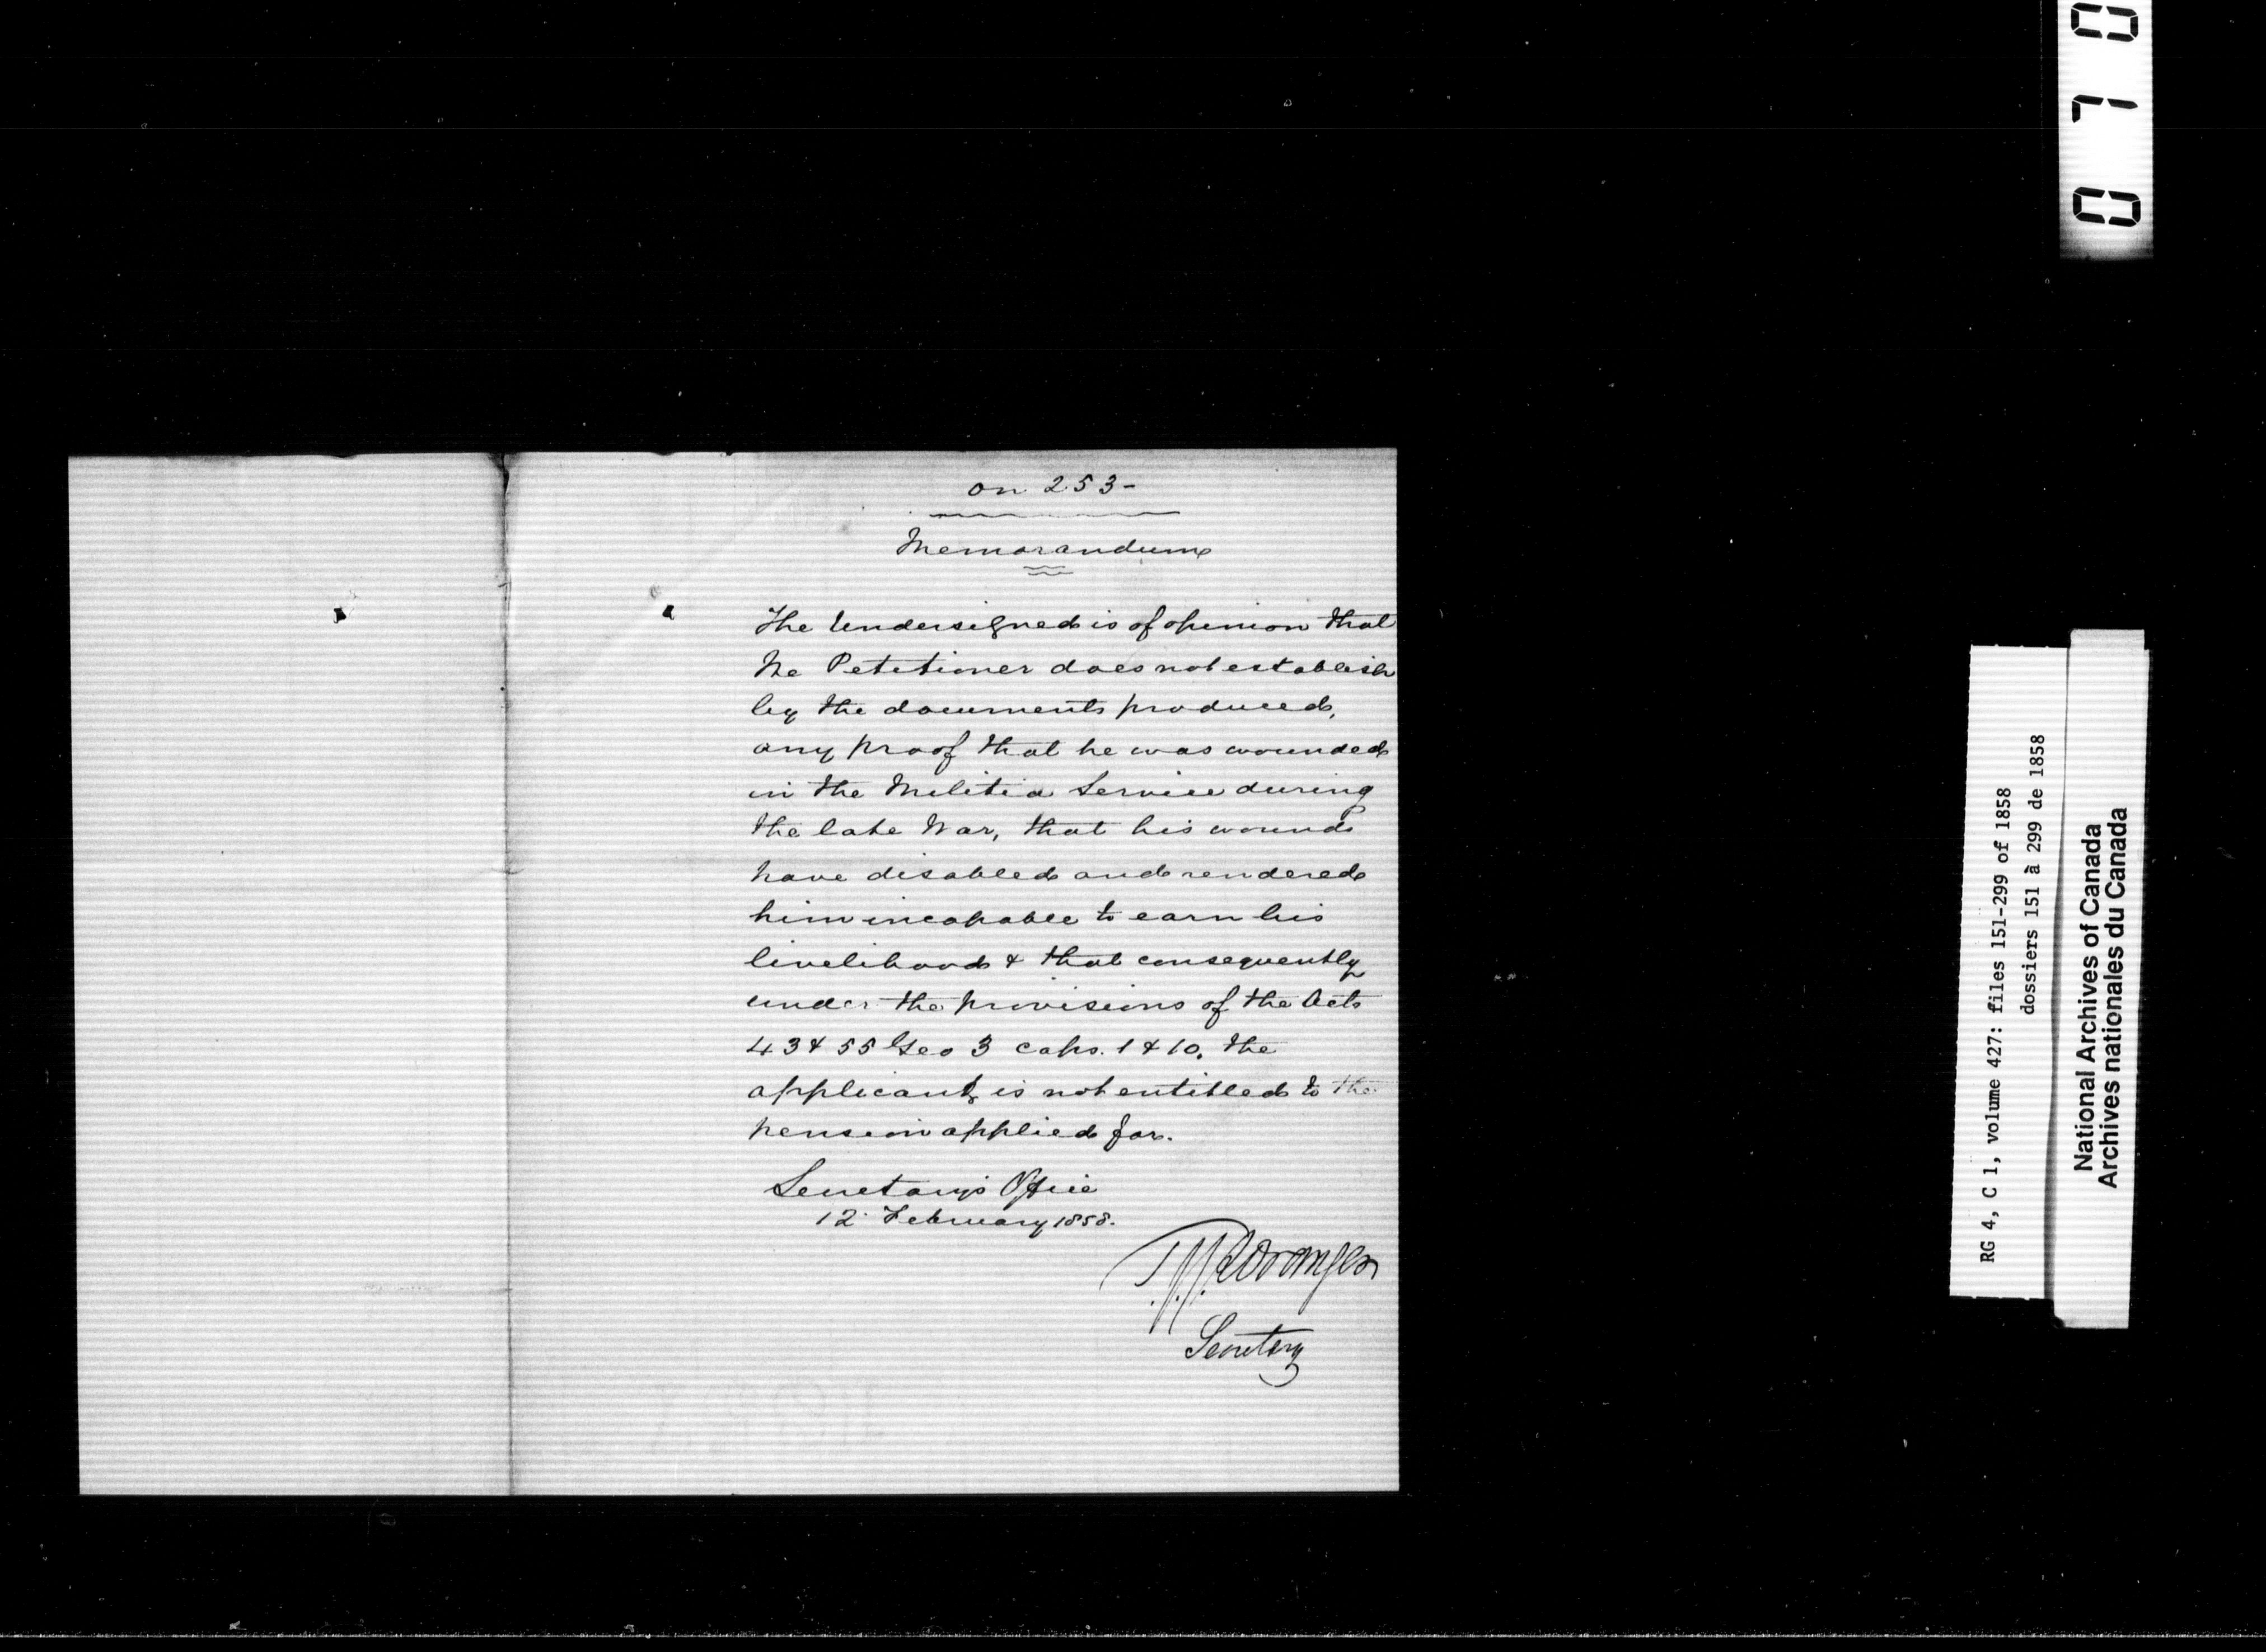 on 253-
Memorandum
The Undersigned is of opinion that
the Petitioner does not establish
by the documents produced,
any proof that he was wounded
in the Militia Service during
the late War, that his wounds
have disabled and rendered
him incapable to earn his
livelihood & that consequently
under the provisions of the Acts
43 & 55 Geo 3 caps. 1 & 10, the
applicant, is not entitled to the
pension applied for.
Secretary's Office
12 February 1858.
T.J.J. Loranger
Secretary
0 7 0
RG 4, C 1, volume 427: files 151-299 of 1858
dossiers 151 à 299 de 1858
National Archives of Canada
Archives nationales du Canada